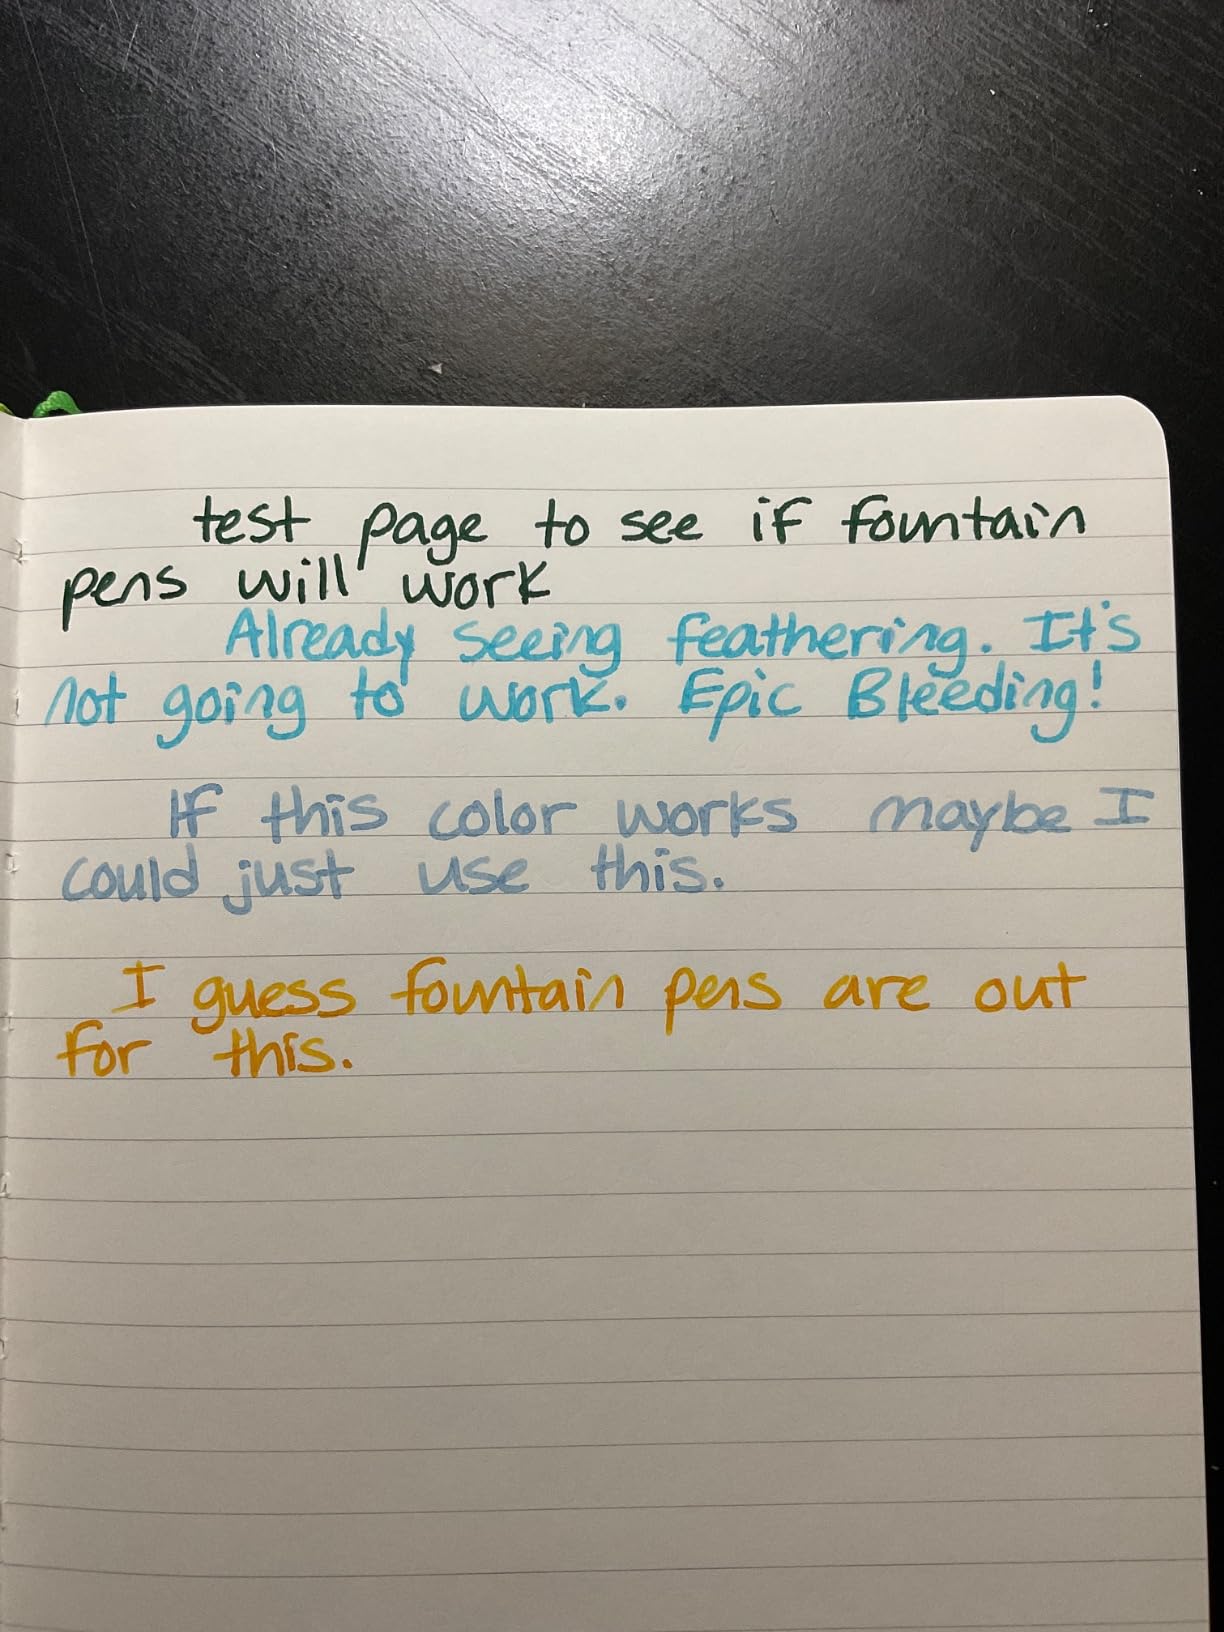 test page to see if fountain
pens will work
Already seeing feathering. It's
not going to work. Epic Bleeding!
If this color works maybe I
could just use this.
I guess fountain pens are out
for this.